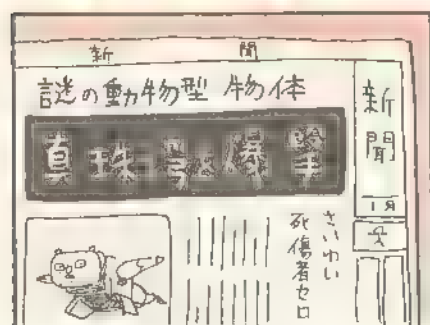 新聞
謎の動物型 物体
真珠 爆
新聞
1月
さいわい
死傷者セロ